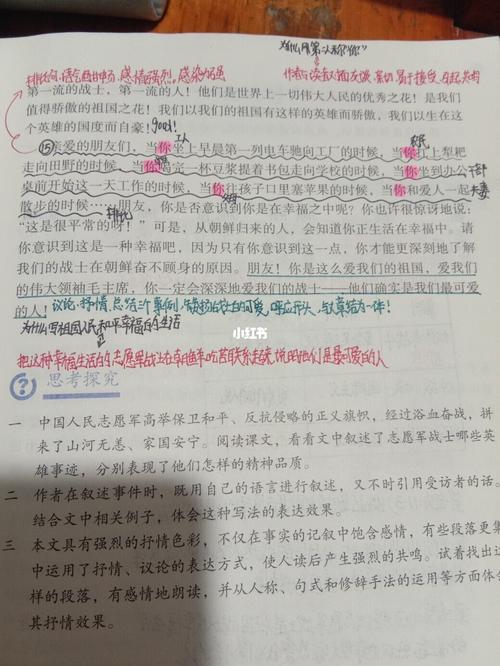 为什么用第二人称“你”
排比句,语气酣畅,感情强烈。感染力强
作者与读者对面交谈,亲切,易于接受,引起共鸣
第一流的战士,第一流的人!他们是世界上一切伟大人民的优秀之花!是我们
值得骄傲的祖国之花!我们以我们的祖国有这样的英雄而骄傲,我们以生在这
个英雄的国度而自豪!good!
工人
农民
⑮亲爱的朋友们,当你坐上早晨第一列电车驰向工厂的时候,当你扛上犁耙
走向田野的时候,当你喝完一杯豆浆提着书包走向学校的时候,当你坐到办公
干部
桌前开始这一天工作的时候,当你往孩子口里塞苹果的时候,当你和爱人一起
夫妻
散步的时候……朋友,你是否意识到你是在幸福之中呢?你也许很惊讶地说:
排比
“这是很平常的呀!”可是,从朝鲜归来的人,会知道你正生活在幸福中。请
你意识到这是一种幸福吧,因为只有你意识到这一点,你才能更深刻地了解
我们的战士在朝鲜奋不顾身的原因。朋友!你是这么爱我们的祖国,爱我们
的伟大领袖毛主席,你一定会深深地爱我们的战士——他们确实是我们最可爱
的人!
议论,抒情,总结三个事例,
呼应开头,
为什么写祖国人民和平幸福的生活
小红书
把这种幸福生活的与志愿军战士在朝鲜吃苦联系起来,说明他们是最可爱的人
思考探究
一 中国人民志愿军高举保卫和平、反抗侵略的正义旗帜,经过浴血奋战,拼
来了山河无恙、家国安宁。阅读课文,看看文中叙述了志愿军战士哪些英
雄事迹,分别表现了他们怎样的精神品质。
二 作者在叙述事件时,既用自己的语言进行叙述,又不时引用受访者的话。
结合文中相关例子,体会这种写法的表达效果。
三 本文具有强烈的抒情色彩,不仅在事实的记叙中饱含感情,有些段落更集
中运用了抒情、议论的表达方式,使人读后产生强烈的共鸣。试着找出这
样的段落,有感情地朗读,并从人称、句式和修辞手法的运用等方面体会
其抒情效果。